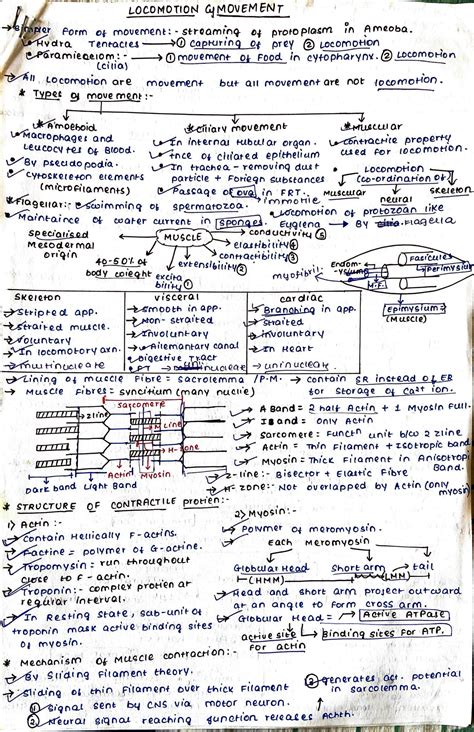 LOCOMOTION & MOVEMENT
Simper form of movement:- streaming of protoplasm in Amoeba.
Hydra Tentacles → ① capturing of prey ② locomotion
Paramieaeium:- (cilia) → ① movement of Food in cytopharynx. ② Locomotion
All Locomotion are movement but all movement are not locomotion.
* Types of movement:-
* Amoeboid
Macrophages and leucocytes of Blood.
By pseudopodia.
cytoskeleton elements (microfilaments)
* Ciliary movement
In internal tubular organ.
ciliared epithelium
In trachea - removing dust particle + Foreign substances
Passage of ova in FRT. → immotile
* Muscular
contractile property used for locomotion.
Locomotion (co-ordination of)
Muscular neural skeleton
* Flagellar:- swimming of spermatozoa.
Locomotion of protozoan like Euglena → By Flagella
Maintaince of water current in sponges.
MUSCLE
specialised Mesodermal origin
40-50% of body weight
excitability ①
extensibility ②
contractibility ③
elastibility ④
conductivity ⑤
myofibril
Endomysium
M.F.
Fasicules
Perimysium
Epimysium (Muscle)
Skeleton
Stripted app.
Straited muscle.
voluntary
In locomotory
multinucleate
visceral
smooth in app.
Non-straited
Involuntary
Allemantary canal
Digestive Tract
uninuclear
cardiac
Branching in app.
straited
involuntary
In Heart
uninuclear
Lining of muscle Fibre = sacrolemma / P.M. → contain SR instead of ER for storage of Ca²⁺ ion.
Muscle Fibres = syncitium (many nuclie)
sarcomere
z line
M line
H-zone
Actin Myosin
Dark band Light Band
A Band = 2 half Actin + 1 Myosin Full.
I Band = only Actin
Sarcomere = Functn unit b/w 2 zline
Actin = Thin Filament + Isotropic band
Myosin = Thick Filament in Anisotropic Band.
Z-line:- Bisector + Elastic Fibre
H-zone:- Not overlapped by Actin (only myosin)
* STRUCTURE OF CONTRACTILE protien:-
1) Actin:-
contain Helically F-actins.
Factine = polymer of G-actine.
Tropomysin = run throughout close to F-actin.
Troponin:- complex protien at regular interval.
In Resting State, sub-unit of troponin mask active binding sites of myosin.
2) Myosin:-
Polymer of meromyosin.
Each Meromyosin
Globular Head short arm → tail
(HMM) (LMM)
Head and short arm project outward at an angle to form cross arm.
Globular Head = Active ATPase
active site for actin
Binding sites for ATP.
* Mechanism of Muscle contraction:-
By Sliding Filament theory.
Sliding of thin Filament over thick Filament
① Signal sent by CNS via motor neuron.
② Neural signal reaching junction releases Achth.
③ generates act. potential in sarcolemma.